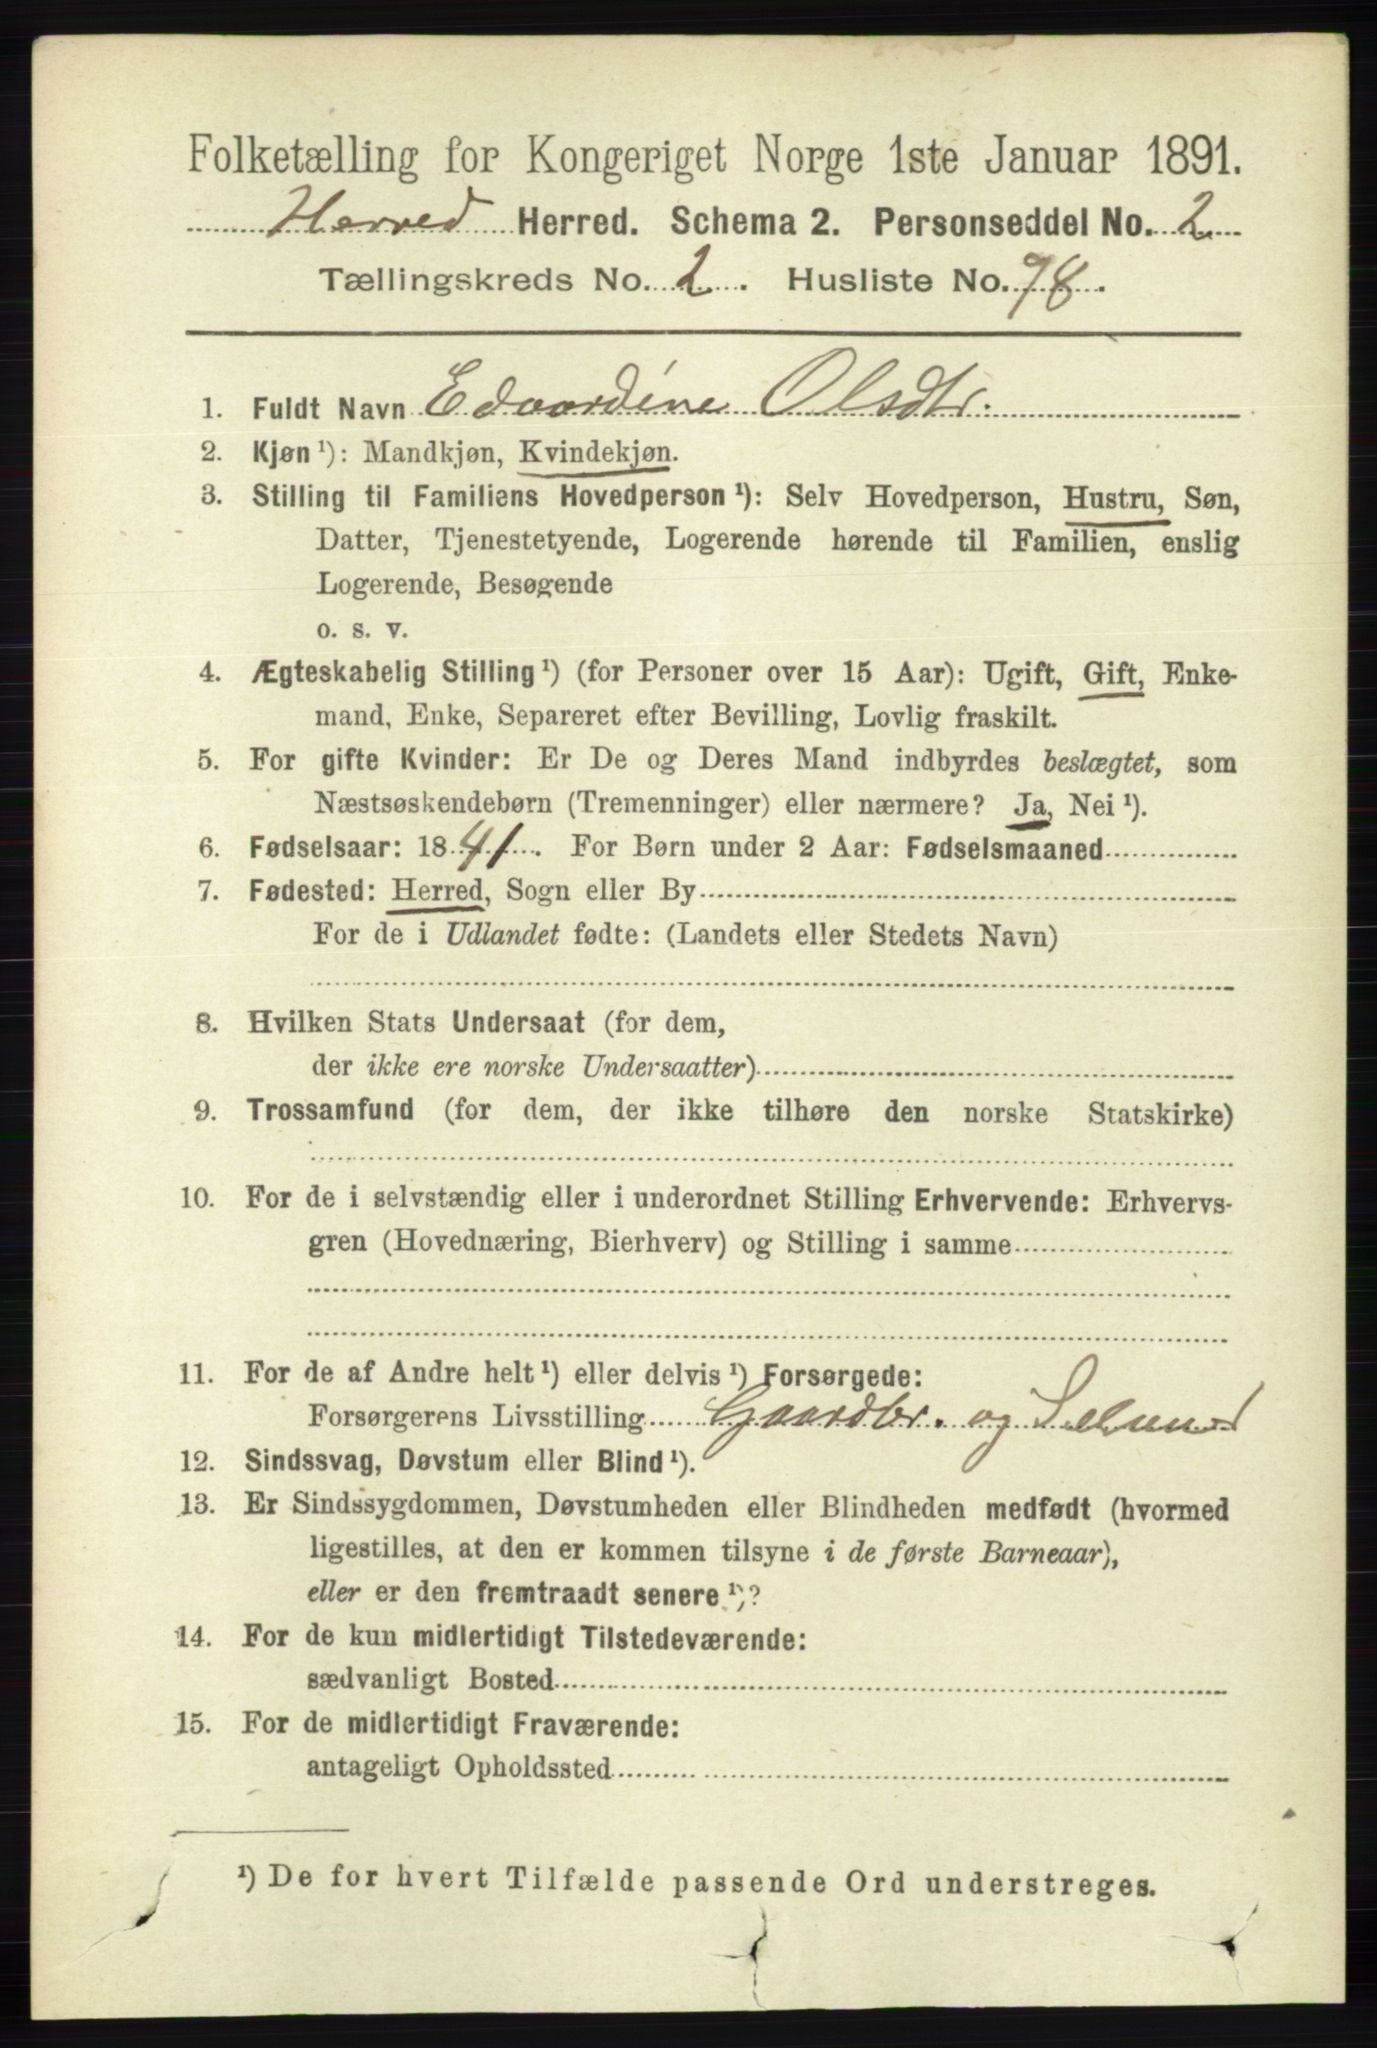 Folketælling for Kongeriget Norge 1ste Januar 1891.
Herred Herred. Schema 2. Personseddel No. 2
Tællingskreds No. 2. Husliste No. 78.
1. Fuldt Navn Edvardine Olsdtr.
2. Kjøn ¹): Mandkjøn, Kvindekjøn.
3. Stilling til Familiens Hovedperson ¹): Selv Hovedperson, Hustru, Søn,
Datter, Tjenestetyende, Logerende hørende til Familien, enslig
Logerende, Besøgende
o. s. v.
4. Ægteskabelig Stilling ¹) (for Personer over 15 Aar): Ugift, Gift, Enke-
mand, Enke, Separeret efter Bevilling, Lovlig fraskilt.
5. For gifte Kvinder: Er De og Deres Mand indbyrdes beslægtet, som
Næstsøskendebørn (Tremenninger) eller nærmere? Ja, Nei ¹).
6. Fødselsaar: 1841. For Børn under 2 Aar: Fødselsmaaned
7. Fødested: Herred, Sogn eller By
For de i Udlandet fødte: (Landets eller Stedets Navn)
8. Hvilken Stats Undersaat (for dem,
der ikke ere norske Undersaatter)
9. Trossamfund (for dem, der ikke tilhøre den norske Statskirke)
10. For de i selvstændig eller i underordnet Stilling Erhvervende: Erhvervs-
gren (Hovednæring, Bierhverv) og Stilling i samme
11. For de af Andre helt ¹) eller delvis ¹) Forsørgede:
Forsørgerens Livsstilling Gaardbr. og
12. Sindssvag, Døvstum eller Blind ¹).
13. Er Sindssygdommen, Døvstumheden eller Blindheden medfødt (hvormed
ligestilles, at den er kommen tilsyne i de første Barneaar),
eller er den fremtraadt senere ¹)?
14. For de kun midlertidigt Tilstedeværende:
sædvanligt Bosted
15. For de midlertidigt Fraværende:
antageligt Opholdssted
¹) De for hvert Tilfælde passende Ord understreges.